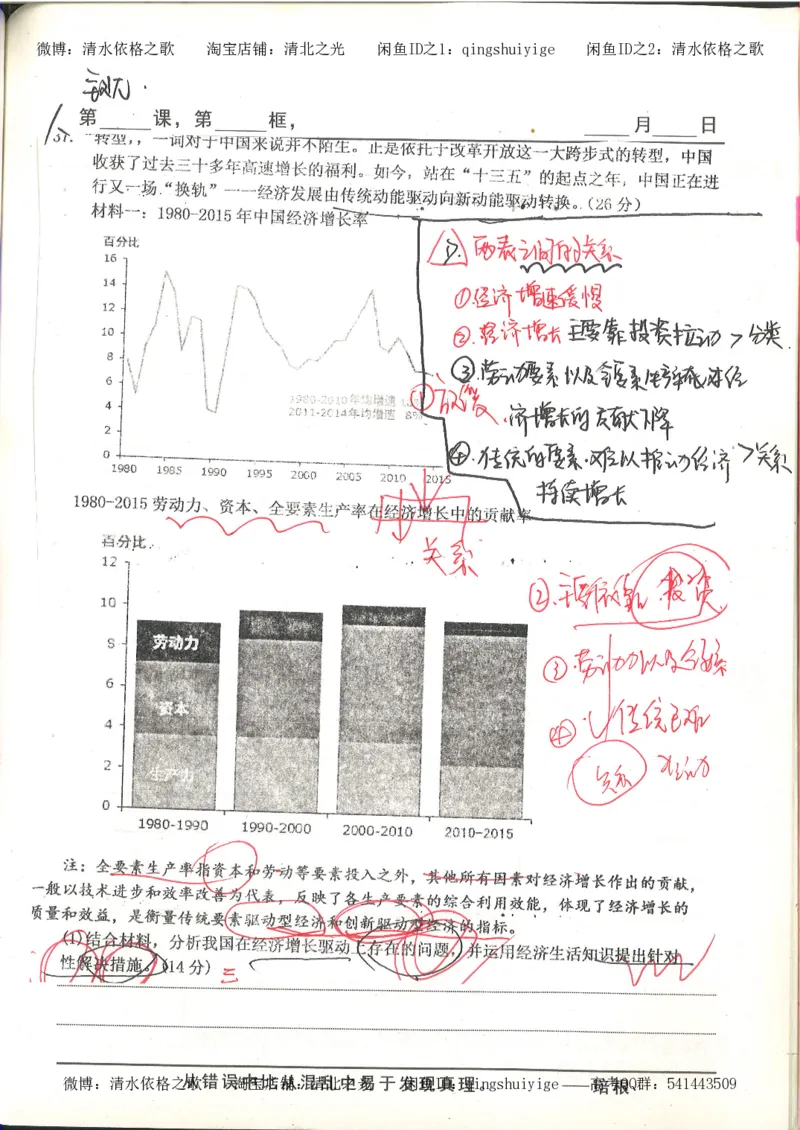 微博：清水依格之歌 淘宝店铺：清北之光 闲鱼ID之1：qingshuiyige 闲鱼ID之2：清水依格之歌
第 课，第 框， 月 日
37. “转型，，一词对于中国来说并不陌生。正是依托于改革开放这一大跨步式的转型，中国
收获了过去三十多年高速增长的福利。如今，站在“十三五”的起点之年，中国正在进
行又一场“换轨”——经济发展由传统动能驱动向新动能驱动转换。（26分）
材料一：1980-2015年中国经济增长率
百分比
16
14
12
10
8
6
4
2
0
1980 1985 1990 1995 2000 2005 2010 2015
1980-2010年均增速
2011-2014年均增速 8%
①. 两表之间的关系
①经济增速缓慢
②. 经济增长主要靠投资拉动 > 分类
③劳动要素以及全要素生产率对经
济增长的贡献下降
④. 传统的要素难以推动经济 > 关系
持续增长
①放缓
1980-2015劳动力、资本、全要素生产率在经济增长中的贡献率
关系
百分比
12
10
8
6
4
2
0
劳动力
资本
生产力
1980-1990 1990-2000 2000-2010 2010-2015
②. 投资
③劳动力以及全要素
④ 传统
关系
注：全要素生产率指资本和劳动等要素投入之外，其他所有因素对经济增长作出的贡献，
一般以技术进步和效率改善为代表，反映了各生产要素的综合利用效能，体现了经济增长的
质量和效益，是衡量传统要素驱动型经济和创新驱动型经济的指标。
(1)结合材料，分析我国在经济增长驱动上存在的问题，并运用经济生活知识提出针对
性解决措施。（14分）
三
从错误中比从混乱中易于发现真理。——培根
微博：清水依格之歌 淘宝店铺：清北之光 闲鱼ID：qingshuiyige 高考QQ群：541443509